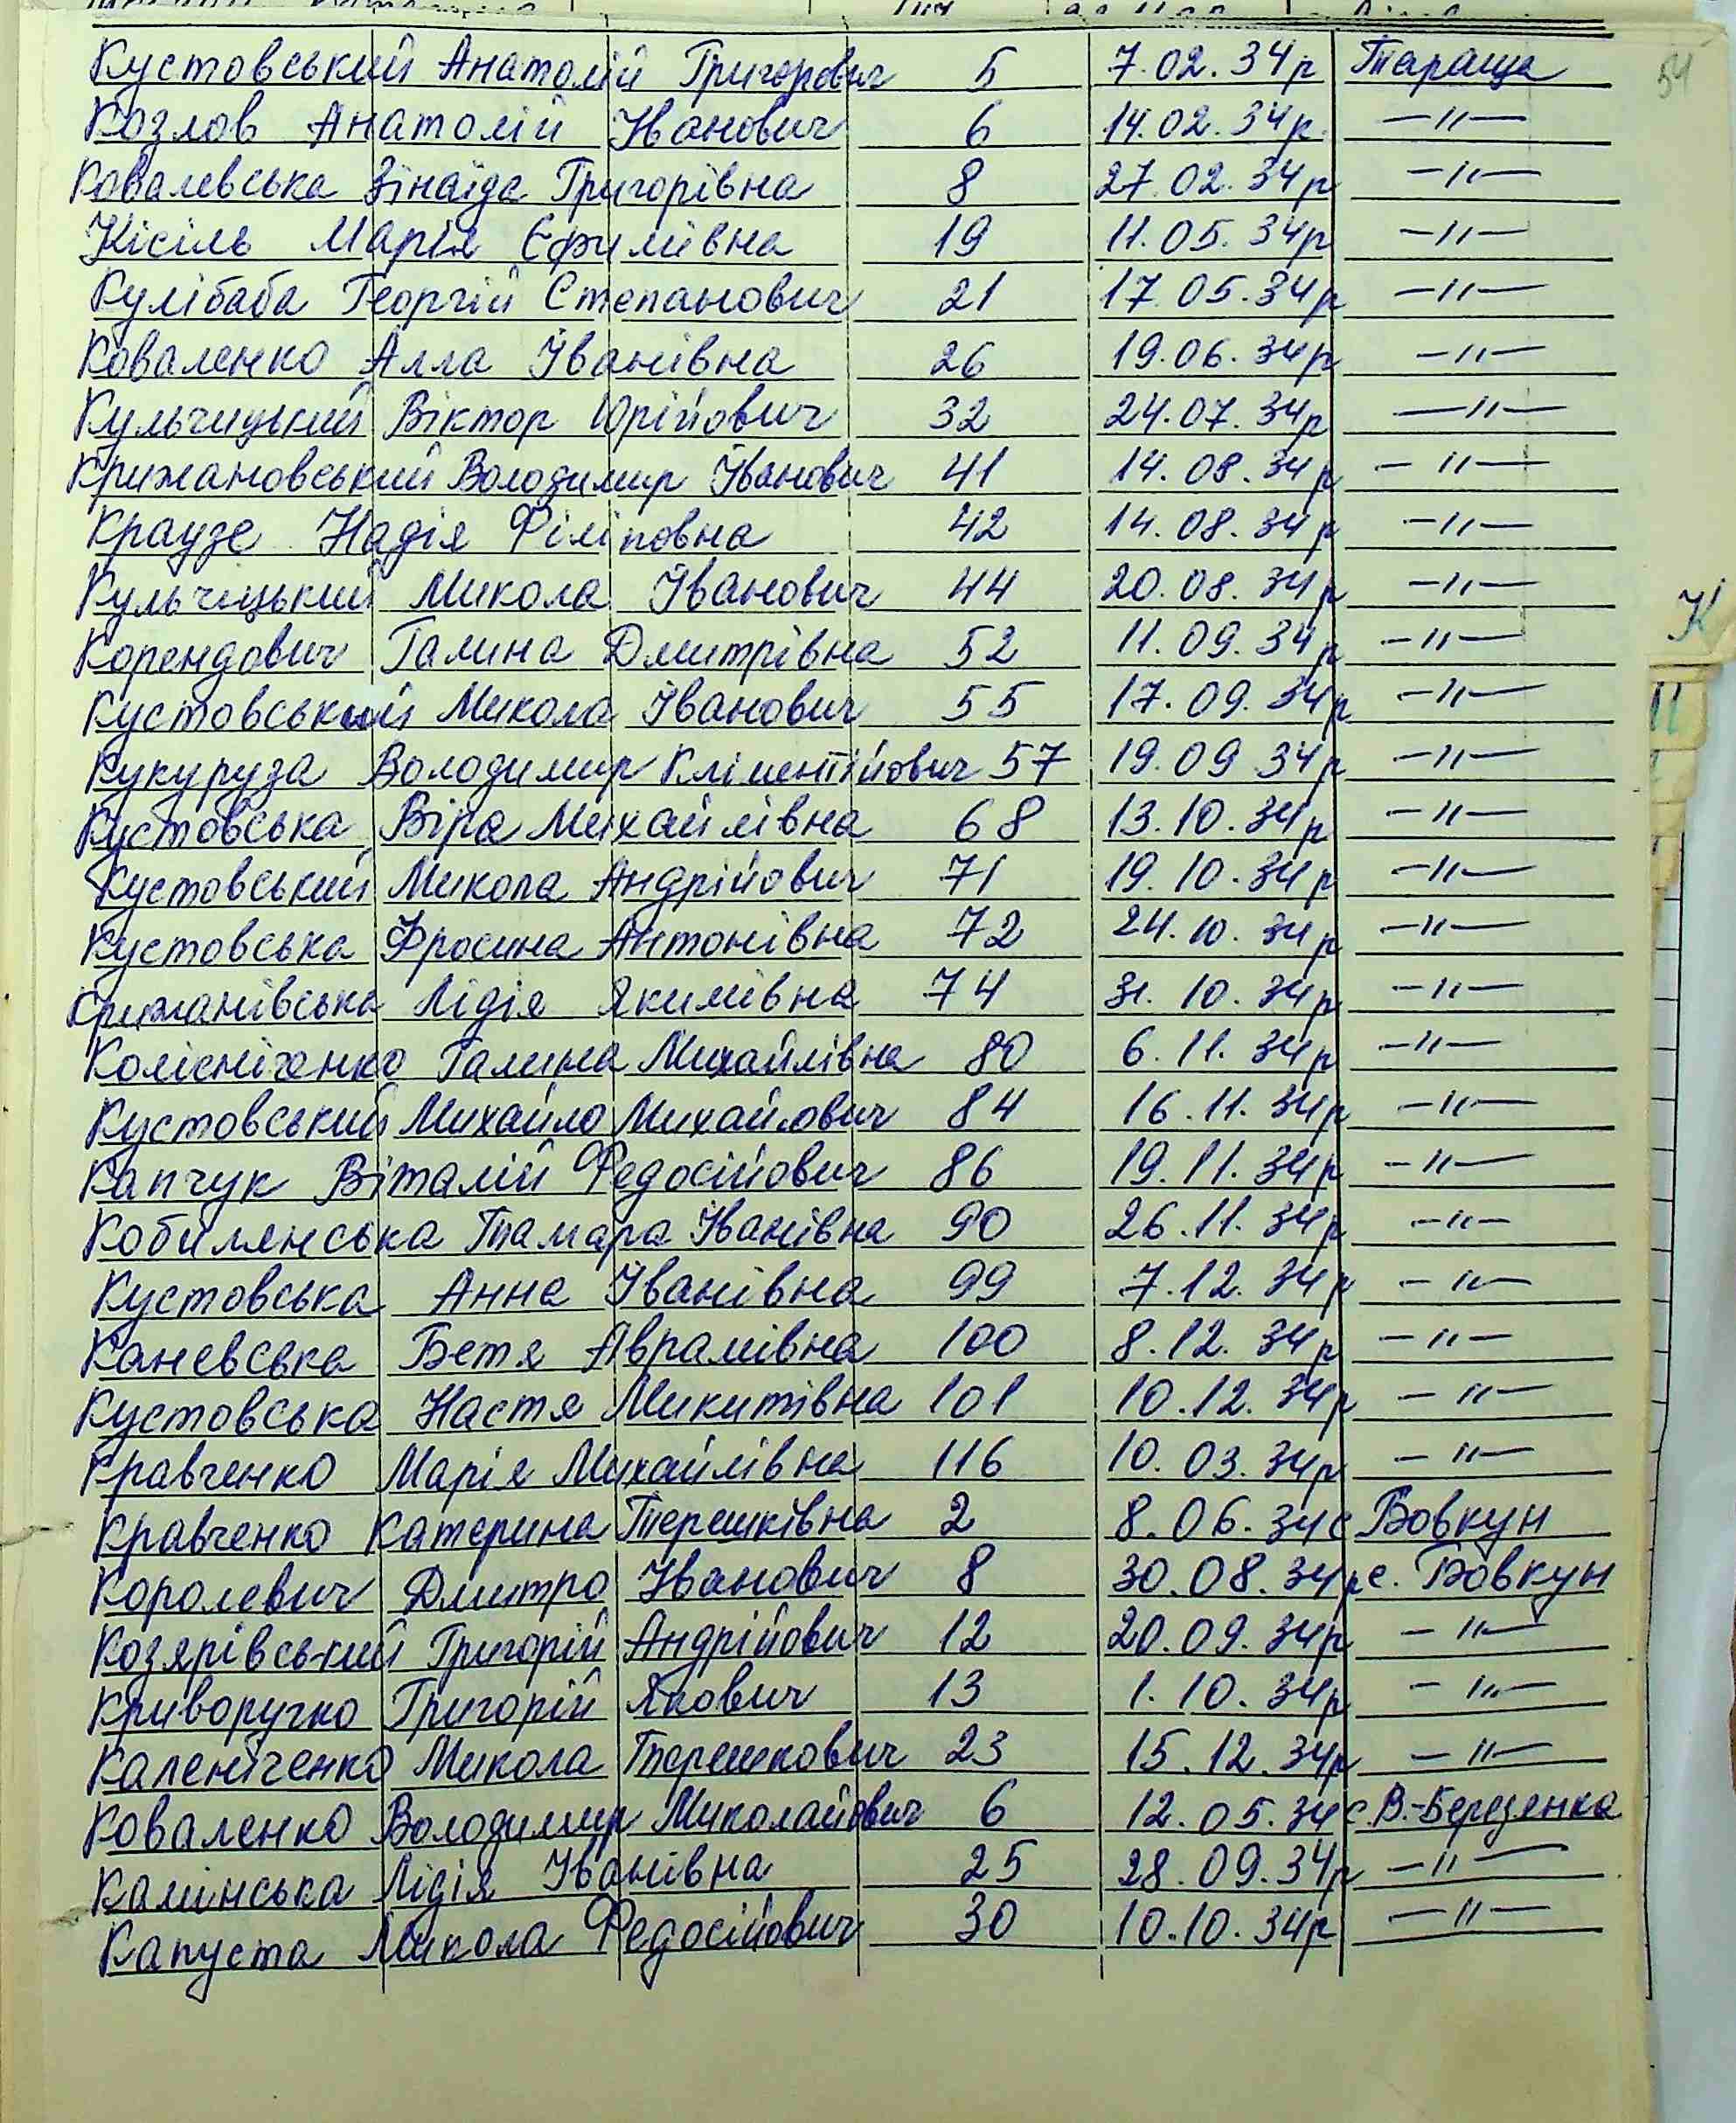 Кустовський Анатолій Григорович 5 7.02.34р Тараща
54
Козлов Анатолій Іванович 6 14.02.34р. —"—
Ковалевська Зінаїда Григорівна 8 27.02.34р —"—
Кісіль Марія Єфимівна 19 11.05.34р —"—
Кулібаба Георгій Степанович 21 17.05.34р —"—
Коваленко Алла Іванівна 26 19.06.34р —"—
Кульчицький Віктор Юрійович 32 24.07.34р —"—
Крижановський Володимир Іванович 41 14.08.34р —"—
Краузе Надія Філіповна 42 14.08.34р —"—
Кульчицький Микола Іванович 44 20.08.34р —"—
К
Корендович Галина Дмитрівна 52 11.09.34р —"—
Кустовський Микола Іванович 55 17.09.34р —"—
Кукуруза Володимир Кліментійович 57 19.09.34р —"—
Кустовська Віра Михайлівна 68 13.10.34р —"—
Кустовський Микола Андрійович 71 19.10.34р —"—
Кустовська Фросина Антонівна 72 24.10.34р —"—
Крижанівська Лідія Якимівна 74 31.10.34р —"—
Колісніченко Галина Михайлівна 80 6.11.34р —"—
Кустовський Михайло Михайлович 84 16.11.34р —"—
Капчук Віталій Федосійович 86 19.11.34р —"—
Кобилянська Тамара Іванівна 90 26.11.34р —"—
Кустовська Анна Іванівна 99 7.12.34р —"—
Каневська Бетя Аврамівна 100 8.12.34р —"—
Кустовська Настя Микитівна 101 10.12.34р —"—
Кравченко Марія Михайлівна 116 10.03.34р —"—
Кравченко Катерина Терешківна 2 8.06.34 с Бовкун
Королевич Дмитро Іванович 8 30.08.34р с. Бовкун
Козярівський Григорій Андрійович 12 20.09.34р —"—
Криворучко Григорій Якович 13 1.10.34р —"—
Каленіченко Микола Терешкович 23 15.12.34р —"—
Коваленко Володимир Миколайович 6 12.05.34 с.В.-Березянка
Камінська Лідія Іванівна 25 28.09.34р —"—
Капуста Микола Федосійович 30 10.10.34р —"—